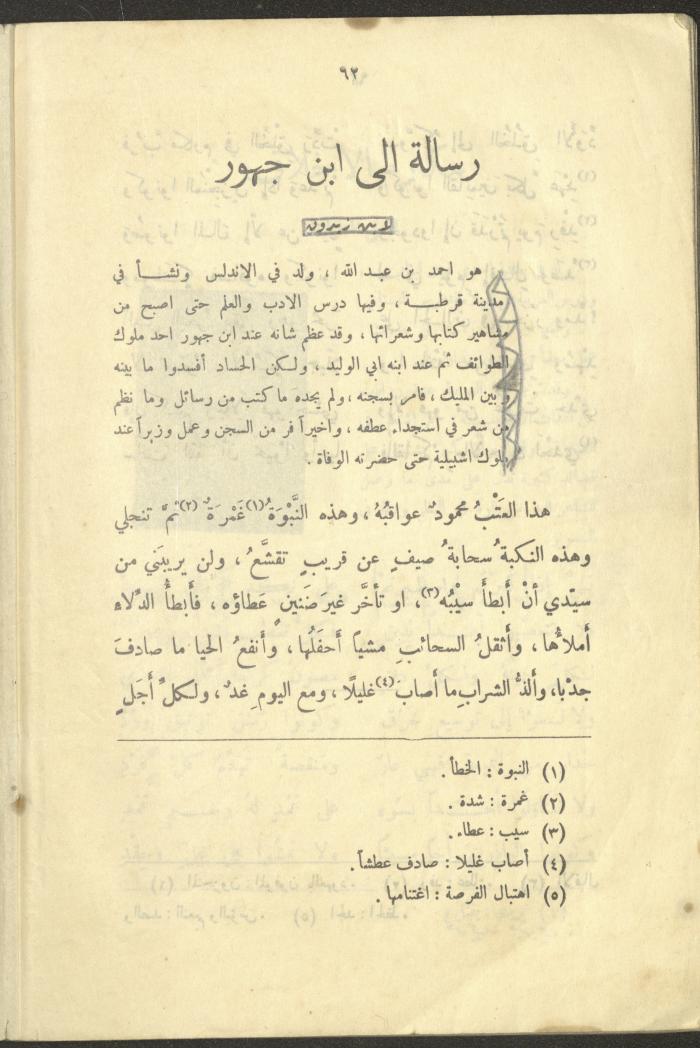 ٩٢
رسالة الى ابن جهور
لابن زيدون
هو احمد بن عبد الله ، ولد في الاندلس ونشأ في
مدينة قرطبة ، وفيها درس الادب والعلم حتى اصبح من
مشاهير كتابها وشعرائها ، وقد عظم شانه عند ابن جهور احد ملوك
الطوائف ثم عند ابنه ابي الوليد ، ولكن الحساد أفسدوا ما بينه
و بين المليك ، فامر بسجنه ، ولم يجده ما كتب من رسائل وما نظم
من شعر في استجداء عطفه ، واخيراً فر من السجن وعمل وزيراً عند
ملوك اشبيلية حتى حضرته الوفاة .
هذا العَتْبُ محمودٌ عواقبُهُ ، وهذه النَّبْوَةُ(١) غَمْرَةٌ(٢) ثمَّ تنجلي
وهذه النكبةُ سحابةُ صيفٍ عن قريبٍ تقشَّعُ ، ولن يريبَني من
سيّدي أنْ أبطأَ سيْبُه(٣) ، او تأخَّر غيرَ ضَنينٍ عَطاؤه ، فأبطأُ الدِّلاء
أملأُها ، وأثقلُ السحائبِ مشياً أحفَلُها ، وأنفعُ الحيا ما صادفَ
جدْبا، وألذُّ الشرابِ ما أصابَ(٤) غليلًا ، ومع اليومِ غدٌ ، ولكلِّ أَجَلٍ
(١) النبوة : الخطأ .
(٢) غمرة : شدة .
(٣) سيب : عطاء .
(٤) أصاب غليلا : صادف عطشاً .
(٥) اهتبال الفرصة : اغتنامها .